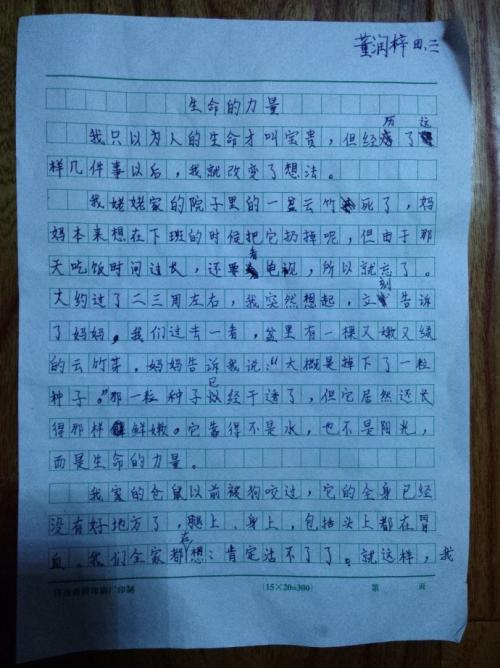 董润梓 四.二
生命的力量
我只以为人的生命才叫宝贵，但经历了这
样几件事以后，我就改变了想法。
我姥姥家的院子里的一盆云竹死了，妈
妈本来想在下班的时候把它扔掉呢，但由于那
天吃饭时间过长，还要看电视，所以就忘了。
大约过了二三周左右，我突然想起，立刻告诉
了妈妈。我们过去一看，盆里有一棵又嫩又绿
的云竹芽，妈妈告诉我说：“大概是掉下了一粒
种子。”那一粒种子已经干透了，但它居然还长
得那样鲜嫩。它靠得不是水，也不是阳光，
而是生命的力量。
我家的仓鼠以前被狗咬过，它的全身已经
没有好地方了，腿上、身上，包括头上都在冒
血。我们全家都在想：肯定活不了了。就这样，我
(15×20=300) 第 页